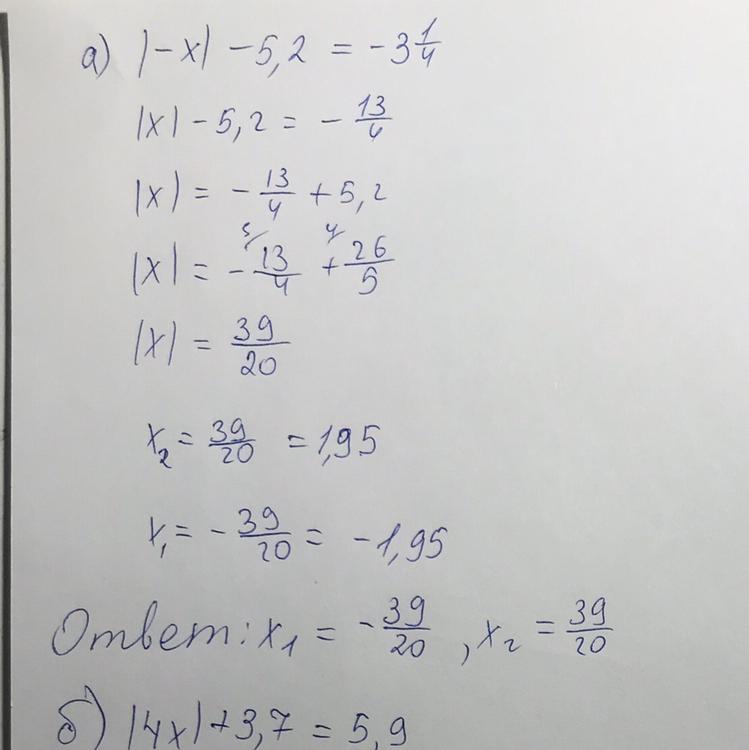 а) |-x| - 5,2 = -3 1/4
|x| - 5,2 = - 13/4
|x| = - 13/4 + 5,2
5 4
|x| = - 13/4 + 26/5
|x| = 39/20
x₂ = 39/20 = 1,95
x₁ = - 39/20 = -1,95
Ответ: x₁ = - 39/20 , x₂ = 39/20
б) |4x| + 3,7 = 5,9